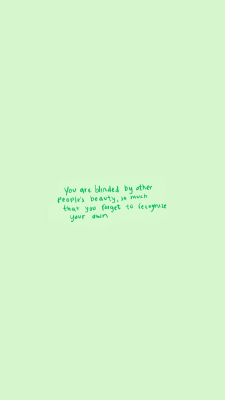 You are blinded by other
People's beauty, so much
that you forget to recognise
your own